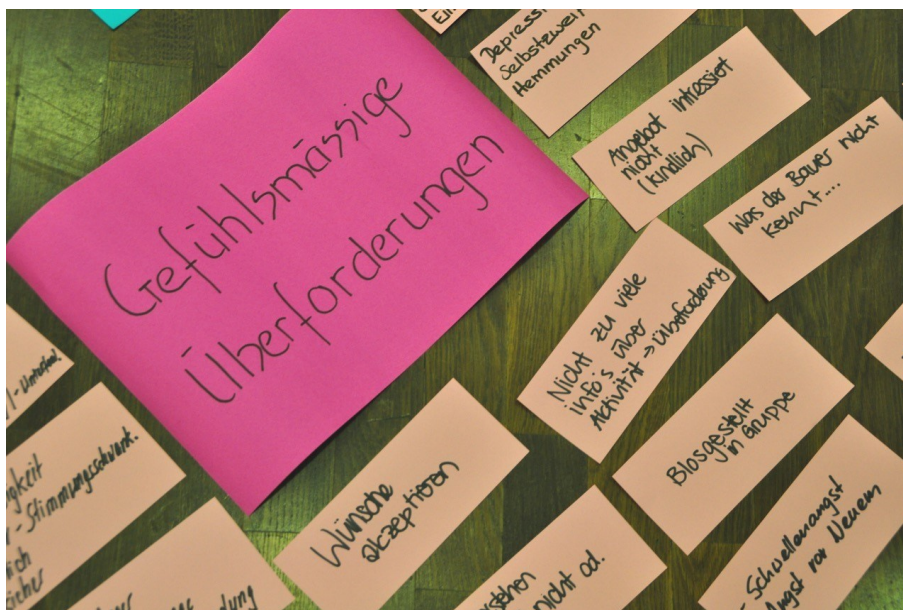 Gefühlsmässige
Überforderungen
Ein
Depressi
Selbstzweif
Hemmungen
Angebot intressiert
nicht
(kindlich)
Was der Bauer nicht
kennt....
Nicht zu viele
info's über
Aktivität → Überforderung
Blosgestellt
in Gruppe
Schwellenangst
ngst vor Neuem
Wünsche
akzeptieren
stehen
nicht od.
igkeit
- Stimmungsschwank.
ich
sicher
dung